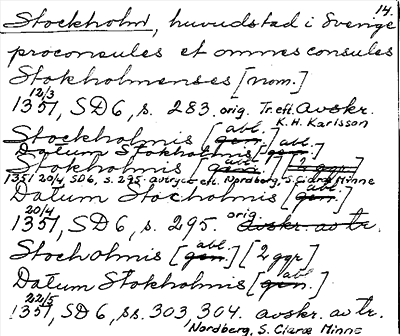 14.
Stockholm, huvudstad i Sverige
proconsules et omnes consules
Stokholmenses [nom.]
12/3
1351, SD6, s. 283. orig. Tr. eft. avskr.
K. H. Karlsson
Stockholmis [gen.] abl.
Datum Stokholmis [gen.] abl.
Stokholmis [gen.] abl. [2 ggr]
1351 20/4 SD6, s. 295. avtryck eft. Nordberg, S. Clara Minne
Datum Stocholmis [gen.] abl.
20/4
1351, SD6, s. 295. orig. avskr. av tr.
Stocholmis [gen.] abl. [2 ggr]
Datum Stokholmis [gen.] abl.
22/5
1351, SD6, ss. 303, 304. avskr. av tr.
Nordberg, S. Claræ Minne